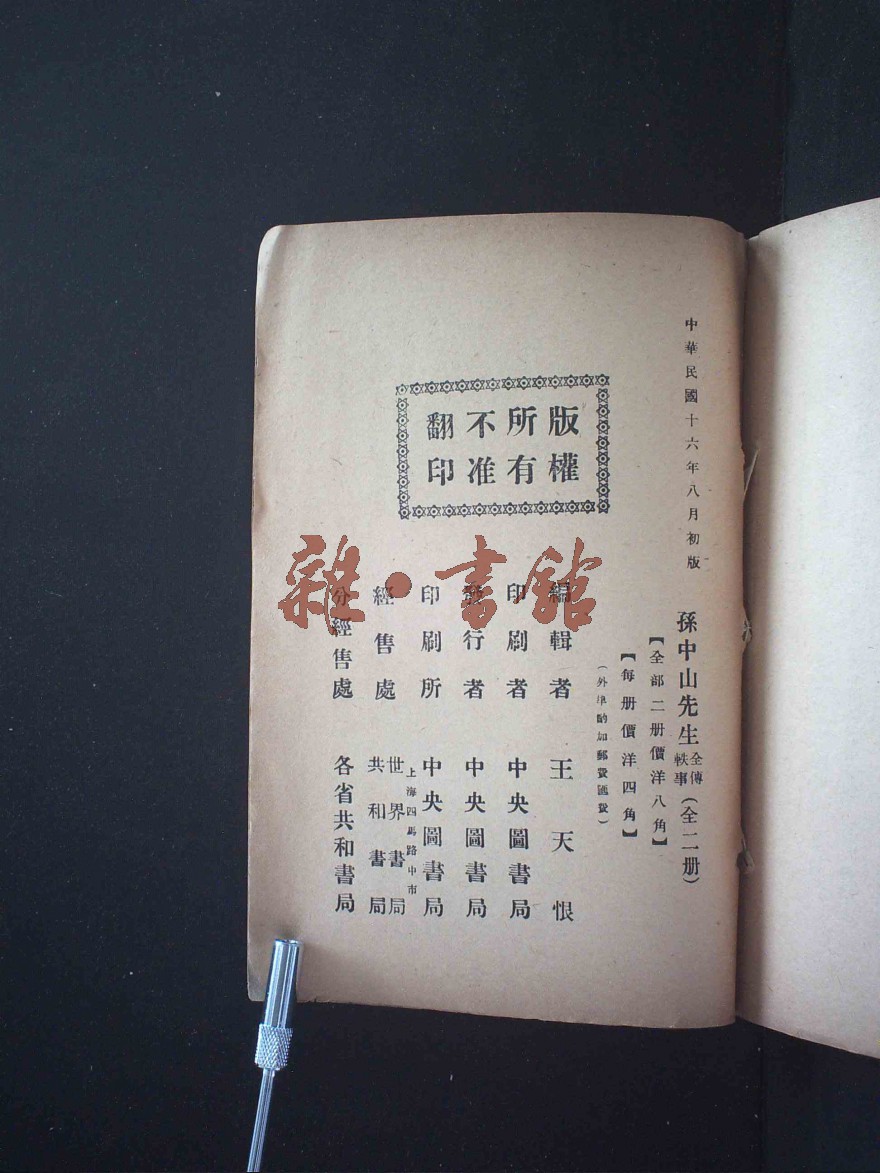 中華民國十六年八月初版
孫中山先生全傳軼事(全二册)
【全部二册價洋八角】
【每册價洋四角】
(外埠酌加郵費匯費)
版權
所有
不准
翻印
編輯者 王天恨
印刷者 中央圖書局
發行者 中央圖書局
印刷所 中央圖書局
上海四馬路中市
經售處 世界書局
共和書局
分經售處 各省共和書局
雜·書館